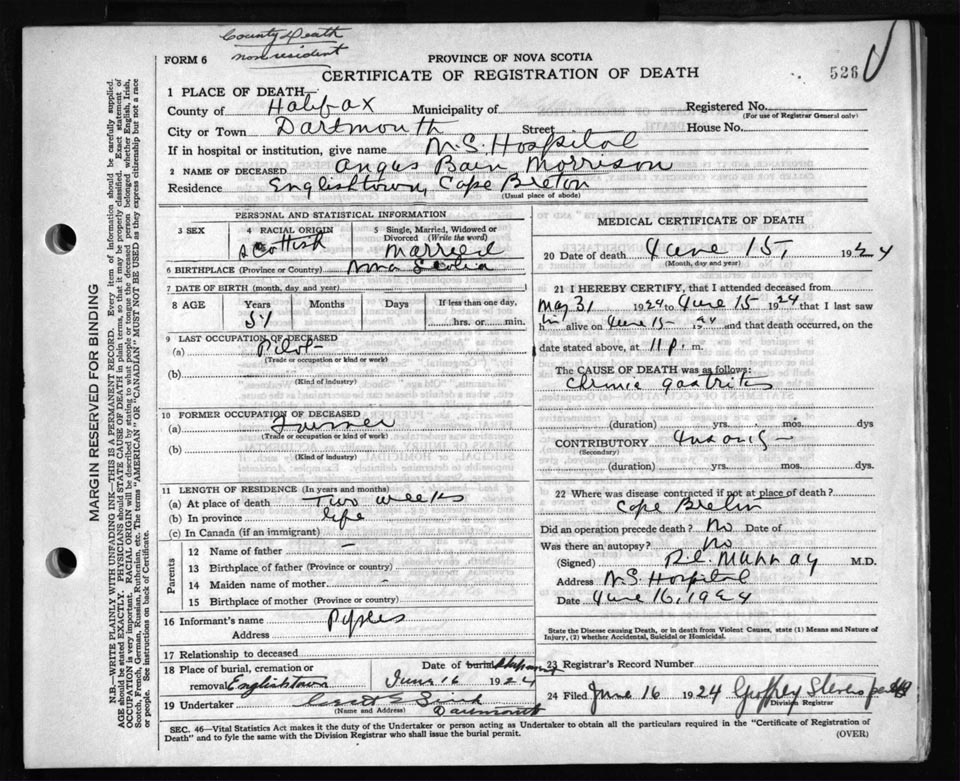 County & Death
non resident
FORM 6
PROVINCE OF NOVA SCOTIA
CERTIFICATE OF REGISTRATION OF DEATH
526
1 PLACE OF DEATH—
County of Halifax Municipality of Registered No.
(For use of Registrar General only)
City or Town Dartmouth Street House No.
If in hospital or institution, give name N.S. Hospital
2 NAME OF DECEASED Angus Bain Morrison
Residence Englishtown, Cape Breton
(Usual place of abode)
PERSONAL AND STATISTICAL INFORMATION
3 SEX 4 RACIAL ORIGIN Scottish 5 Single, Married, Widowed or Divorced (Write the word) Married
6 BIRTHPLACE (Province or Country) Nova Scotia
7 DATE OF BIRTH (month, day, and year)
8 AGE Years Months Days If less than one day,
51 hrs. or min.
9 LAST OCCUPATION OF DECEASED
(a) Pilot
(Trade or occupation or kind or work)
(b)
(Kind of industry)
10 FORMER OCCUPATION OF DECEASED
(a)
(Trade or occupation or kind of work)
(b)
(Kind of industry)
11 LENGTH OF RESIDENCE (In years and months)
(a) At place of death Two weeks
(b) In province life
(c) In Canada (if an immigrant)
Parents
12 Name of father —
13 Birthplace of father (Province or country)
14 Maiden name of mother -
15 Birthplace of mother (Province or country)
16 Informant's name
Address
17 Relationship to deceased
18 Place of burial, cremation or Date of burial
removal Englishtown June 16 1924
19 Undertaker
(Name and Address) Dartmouth
MEDICAL CERTIFICATE OF DEATH
20 Date of death June 15, 1924
(Month, day and year)
21 I HEREBY CERTIFY, that I attended deceased from
May 31 1924 to June 15 1924 that I last saw
him alive on June 15 1924 and that death occurred, on the
date stated above, at 11 p. m.
The CAUSE OF DEATH was as follows:
Chronic gastritis
(duration) yrs. mos. dys
CONTRIBUTORY
(Secondary)
(duration) yrs. mos. dys.
22 Where was disease contracted if not at place of death?
Cape Breton
Did an operation precede death? No Date of
Was there an autopsy? No
(Signed) M.D.
Address N.S. Hospital
Date June 16, 1924
State the Disease causing Death, or in death from Violent Causes, state (1) Means and Nature of
Injury, (2) whether Accidental, Suicidal or Homicidal.
23 Registrar's Record Number
24 Filed June 16 1924 Geoffrey Stevens
Division Registrar
SEC. 46—Vital Statistics Act makes it the duty of the Undertaker or person acting as Undertaker to obtain all the particulars required in the "Certificate of Registration of
Death" and to fyle the same with the Division Registrar who shall issue the burial permit. (OVER)
MARGIN RESERVED FOR BINDING
N.B.—WRITE PLAINLY WITH UNFADING INK—THIS IS A PERMANENT RECORD. Every item of information should be carefully supplied.
AGE should be stated EXACTLY. PHYSICIANS should STATE CAUSE OF DEATH in plain terms, so that it may be properly classified. Exact statement of
OCCUPATION is very important. RACIAL ORIGIN will be described by stating to what people or tongue the deceased person belonged whether English, Irish,
Scotch, French, German, Russian, Ruthenian, etc. The terms "AMERICAN" OR "CANADIAN" MUST NOT BE USED as they express citizenship but not a race
or people. See instructions on back of Certificate.